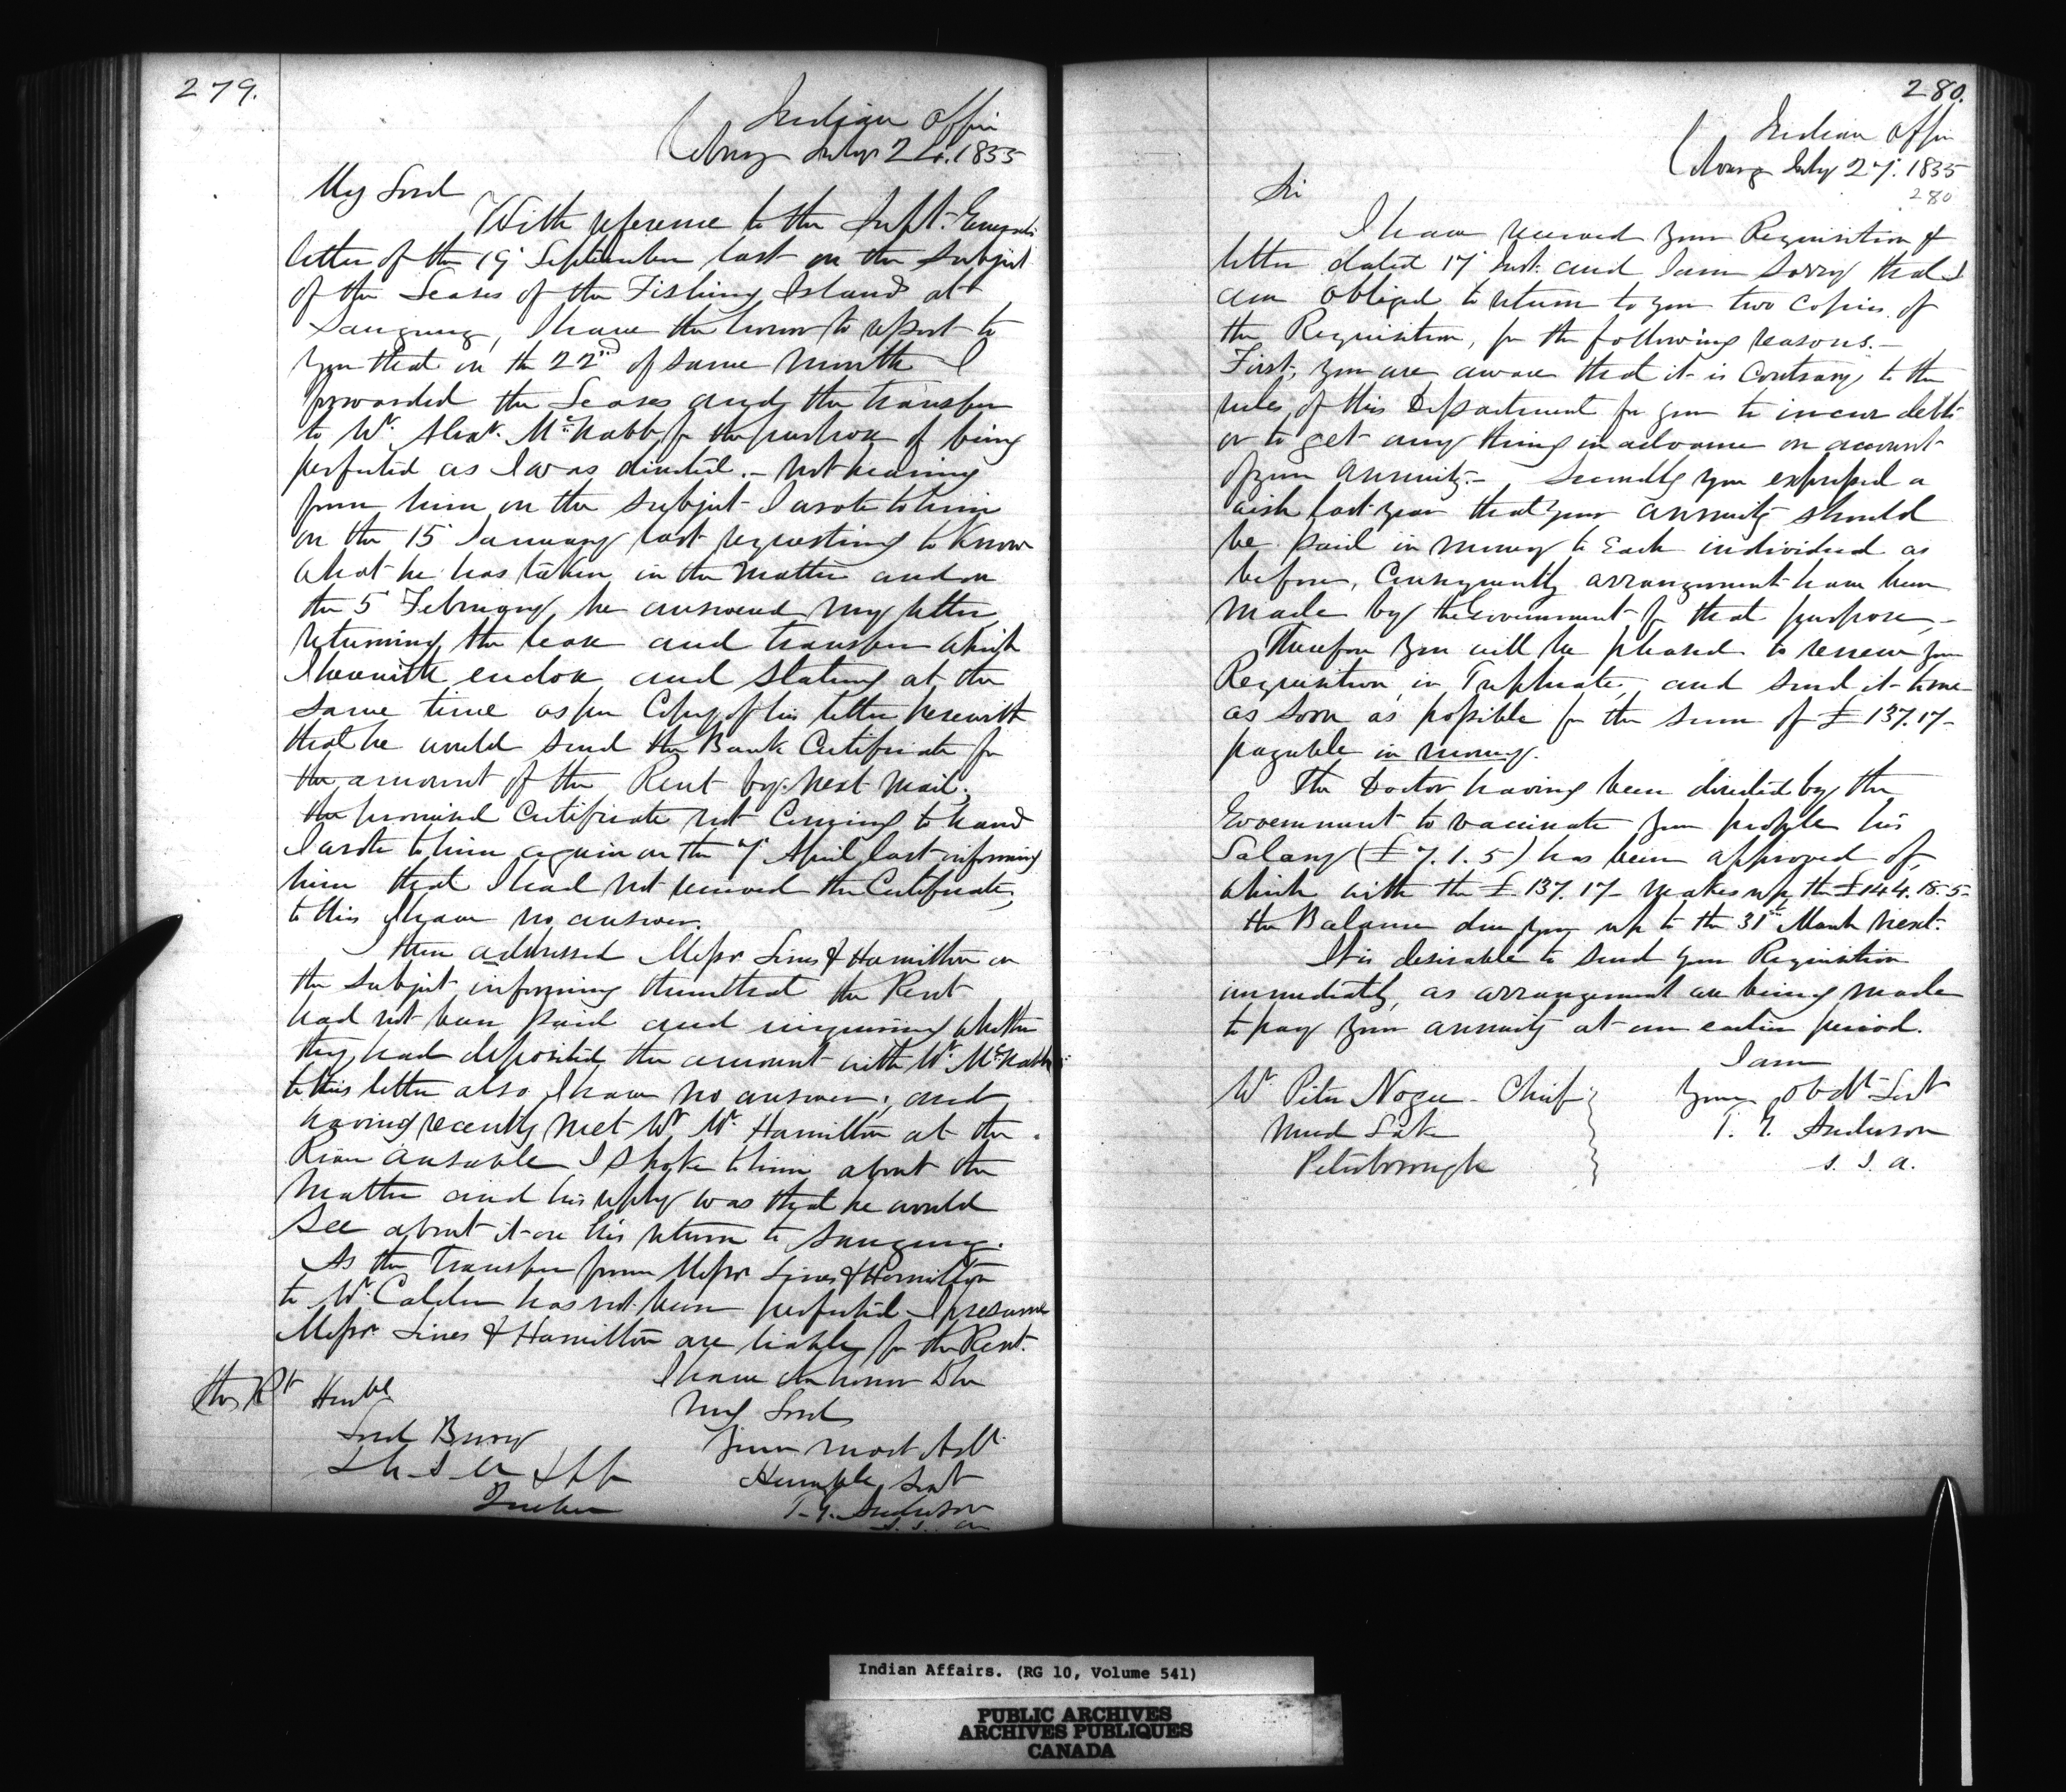 279.
Indian Office
Cobourg July 24. 1855
My Lord
With reference to the Supt. Generals
letter of the 19 September last on the subject
of the Leases of the Fishing Island at
Saugeeng, I have the honor to report to
you that on the 22nd of same month I
forwarded the Leases and the transfer
to Mr. Alexr. McNabb for the purpose of being
perfected as I was directed. - not hearing
from him on the subject I wrote to him
on the 15 January last requesting to know
what he has taken in the matter and on
the 5 February he answered my letter
returning the lease and transfer which
I herewith enclose and stating at the
same time as per Copy of his letter herewith
that he would send the Bank Certificate for
the amount of the Rent by next mail;
the promised Certificate not Coming to hand
I wrote to him again on the 7 April last informing
him that I had not received the Certificate,
to this I have no answer.
I then addressed Messrs Lines & Hamilton on
the subject informing them that the Rent
had not been paid and inquiring whether
they had deposited the amount with Mr. McNabb
to this letter also I have no answer; and
having recently met Mr. Hamilton at the
River Ausable I spoke to him about the
matter and his reply was that he would
see about it on his return to Saugeeng.
As the Transfer from Messrs Lines & Hamilton
to Mr. Calder has not been perfected I presume
Messrs. Lines & Hamilton are liable for the Rent.
I have the honor to be
The Rt Honble
My Lord
Lord Bury
Your most Obt.
Humble Svt
Quebec
T. G. Anderson
S. I. A.
280.
Indian Office
Cobourg July 27. 1855
280
Sir
I have received your Requisition &
letter dated 17 Inst. and I am sorry that I
am obliged to return to you two Copies of
the Requisition, for the following reasons. -
First, you are aware that it is Contrary to the
rules of this Department for you to incur debts
or to get any thing in advance on account
of your Annuity. - Secondly you expressed a
wish last year that your annuity should
be paid in money to Each individual as
before, Consequently arrangement have been
made by the Government for that purpose, -
Therefore you will be pleased to renew your
Requisition in Triplicate and send it to me
as soon as possible for the sum of £137.17-
payable in money.
The Doctor having been directed by the
Government to vaccinate your people his
Salary (£7.1.5) has been approved of,
which with the £137.17- makes up the £144.18.5-
the Balance due you up to the 31st March next.
It is desirable to send your Requisition
immediately, as arrangement are being made
to pay your annuity at an earlier period.
I am
Mr Peter Nogee - Chief
Your Obdt Svt
Mud Lake
T. G. Anderson
Peterborough
S. I. A.
Indian Affairs. (RG 10, Volume 541)
PUBLIC ARCHIVES
ARCHIVES PUBLIQUES
CANADA